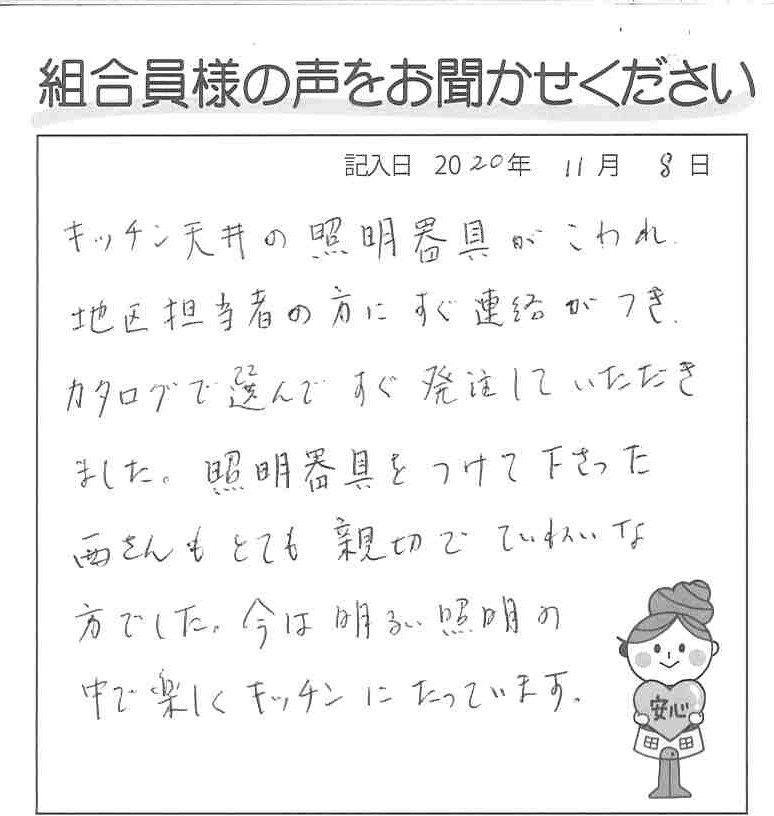 組合員様の声をお聞かせください
記入日 2020年 11月 8日
キッチン天井の照明器具がこわれ、
地区担当者の方にすぐ連絡がつき、
カタログで選んですぐ発注していただき
ました。照明器具をつけて下さった
西さんもとても親切でていねいな
方でした。今は明るい照明の
中で楽しくキッチンにたっています。
安心